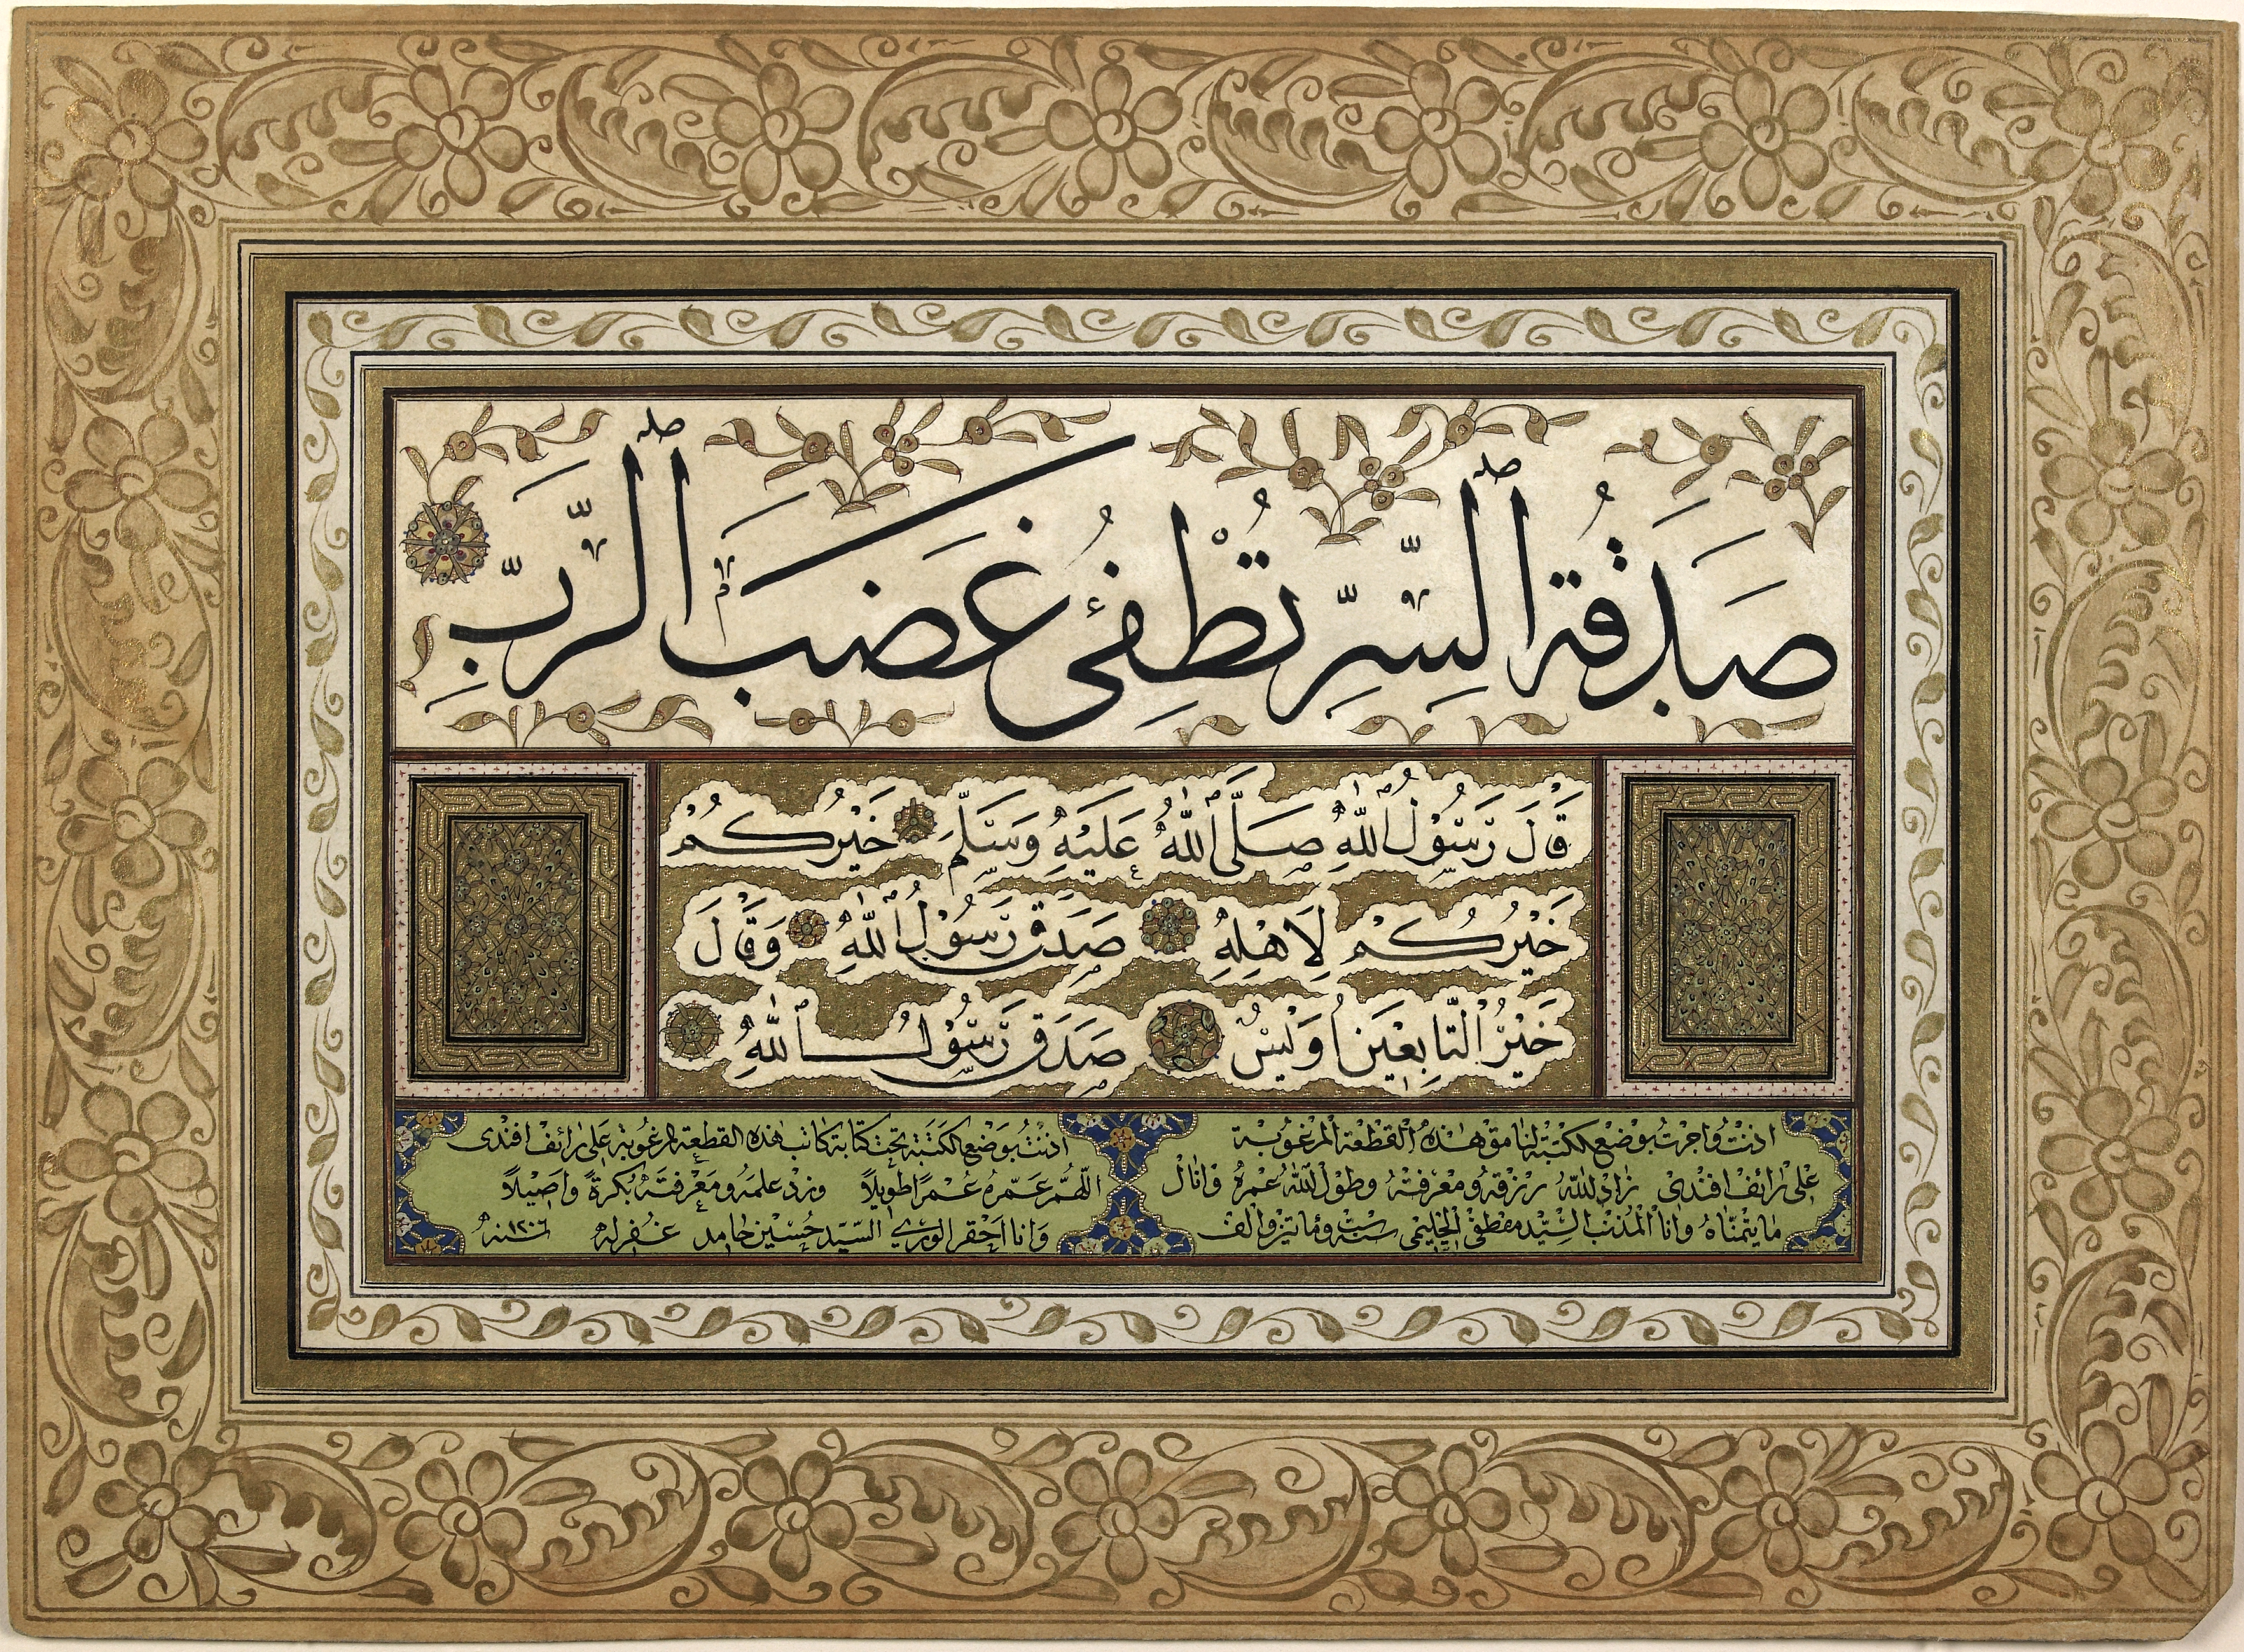 صَدَقَةُ ٱلسِّرِّ تُطْفِئُ غَضَبَ ٱلرَّبِّ
قَالَ رَسُوْلُ ٱللّٰهِ صَلَّى ٱللّٰهُ عَلَيْهِ وَسَلَّمَ خَيْرُكُمْ
خَيْرُكُمْ لِاَهْلِهِ صَدَقَ رَسُوْلُ ٱللّٰهِ وَقَالَ
خَيْرُ التَّابِعِيْنَ اُوَيْسٌ صَدَقَ رَسُوْلُ ٱللّٰهِ
اذنت واجزت بوضع الكتبة لنامق هذه القطعة المرغوبة
على رائف افندى زاد الله رزقه ومعرفته وطول الله عمره وانال
مايتمناه وانا المذنب السيد مصطفى الحليمى سنة ومأتين والف
اذنت بوضع الكتبة تحت كتابة كاتب هذه القطعة المرغوبة على رائف افندى
اللهم عمره عمرا طويلا وزد علمه ومعرفته بكرة واصيلا
وانا احقر الورى السيد حسين حامد غفر له سنه ١٢٠٦